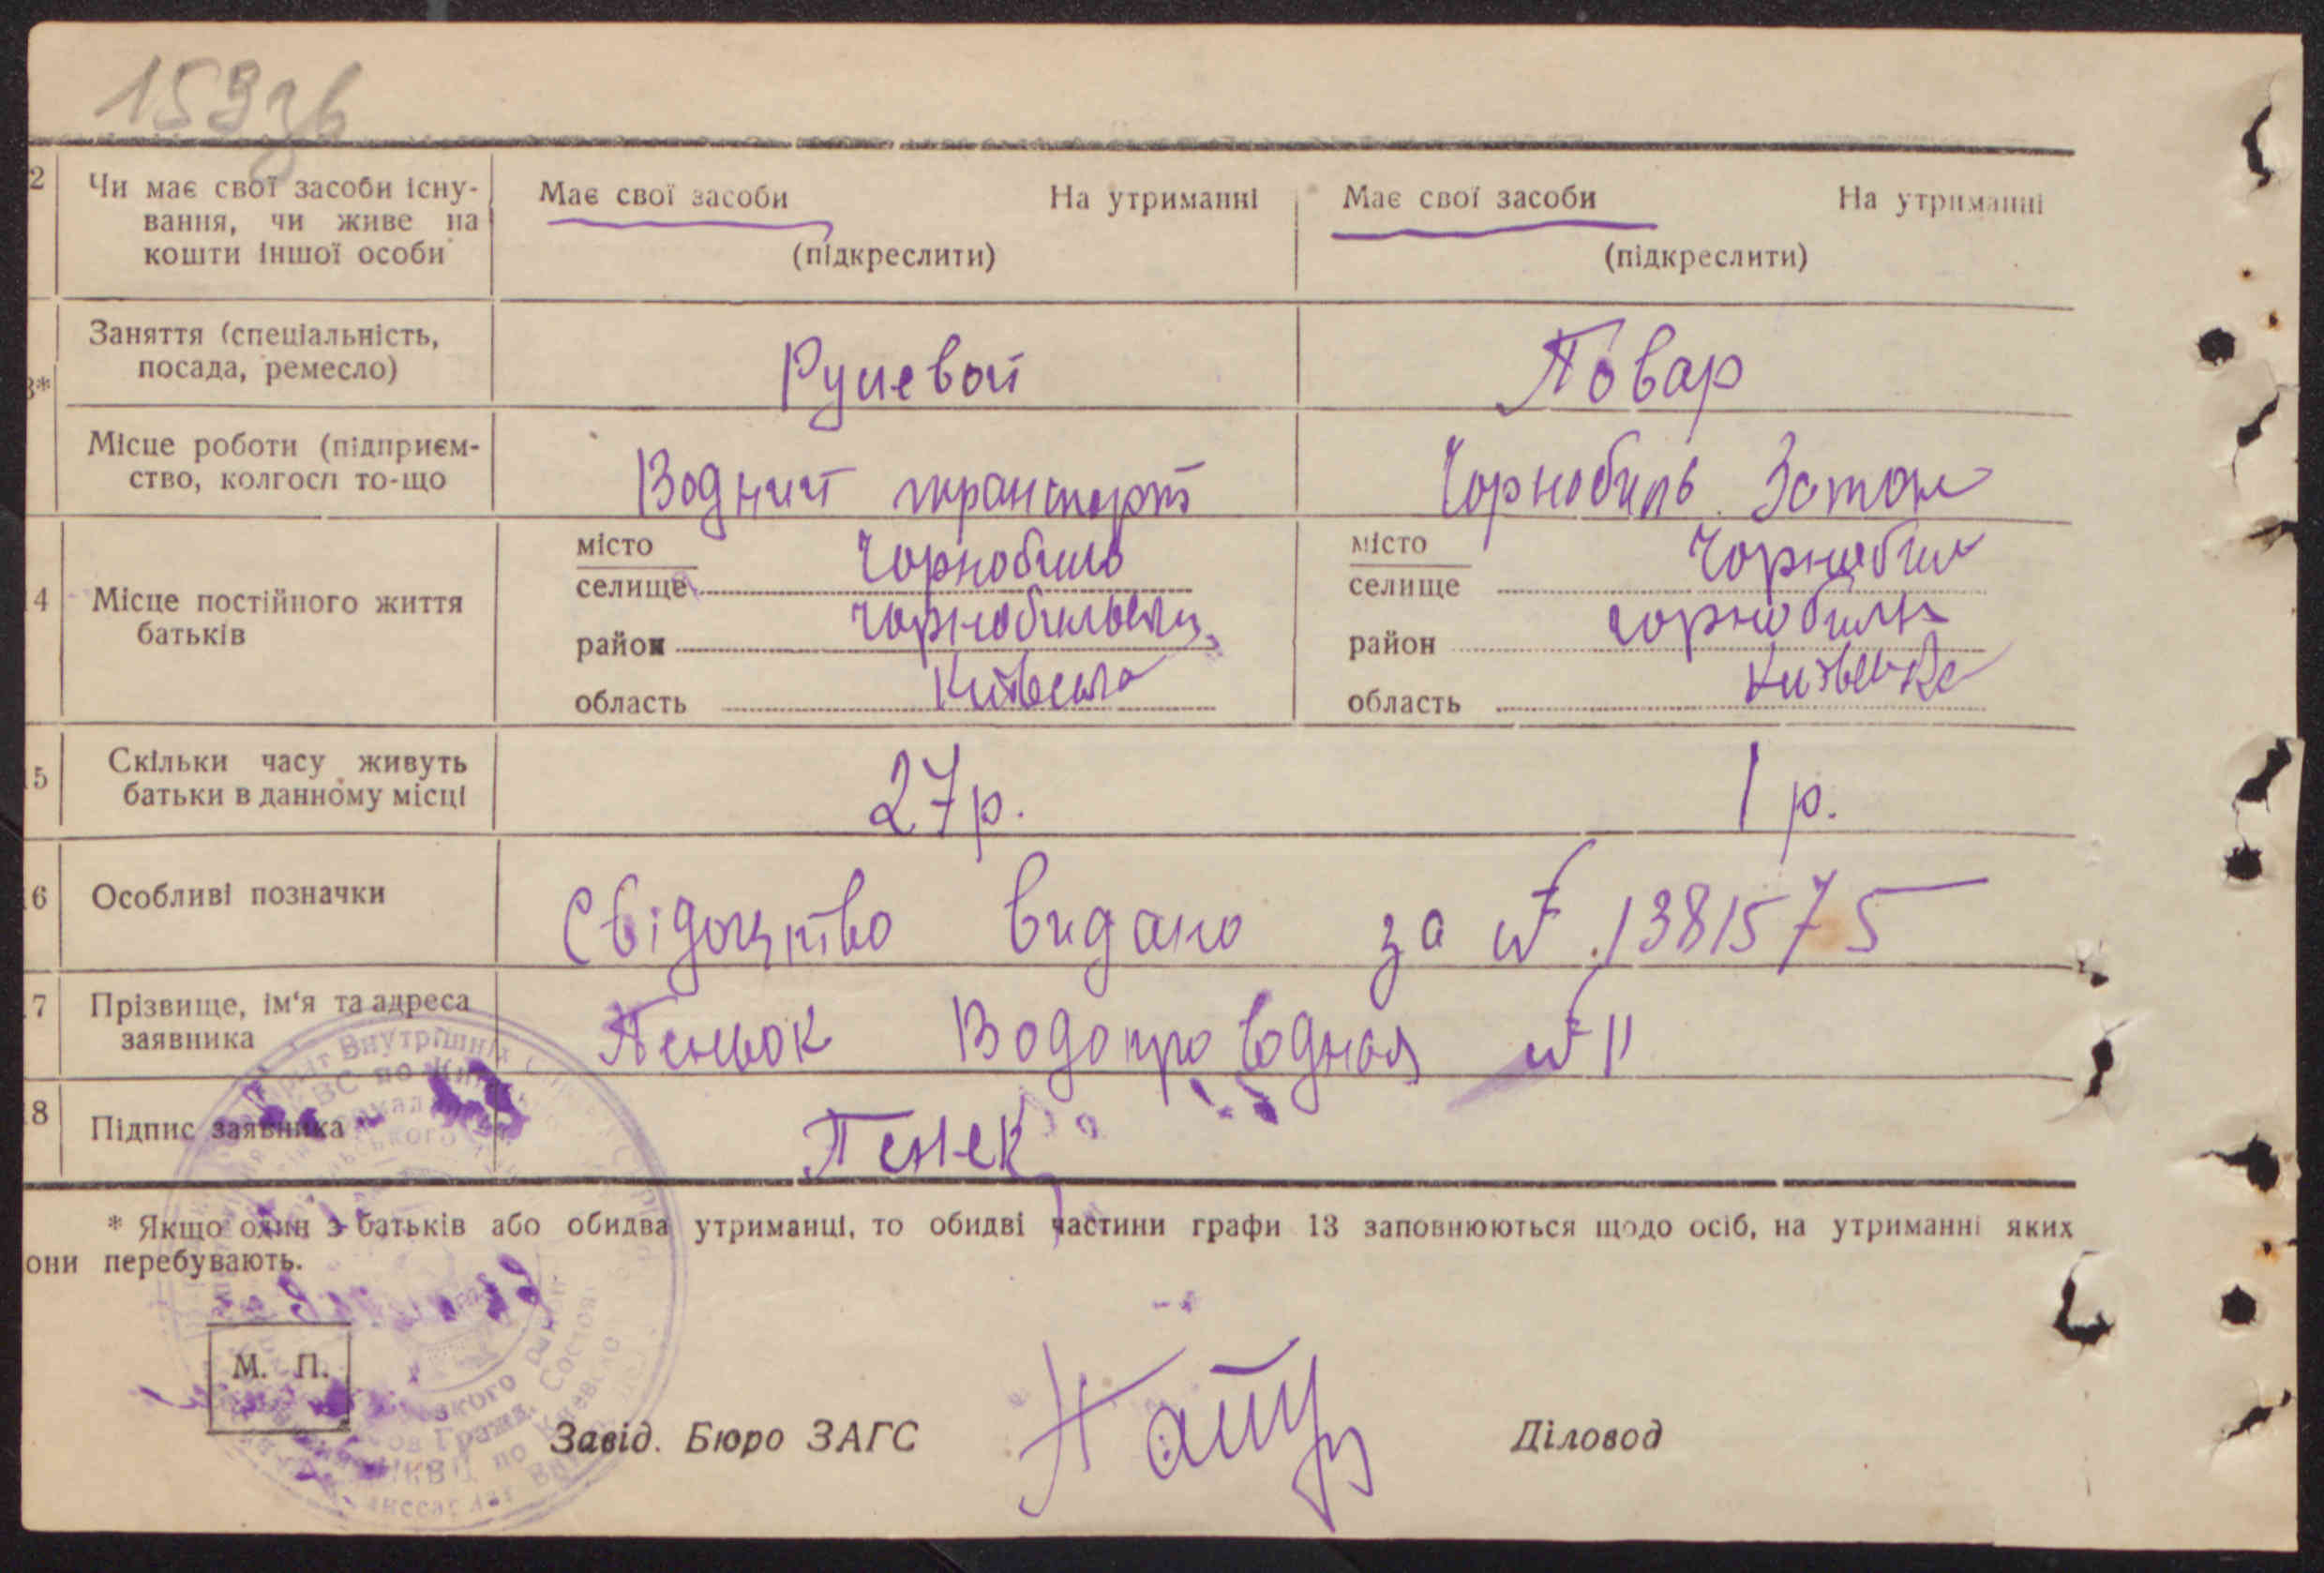 159зв
2 Чи має свої засоби існу- Має свої засоби На утриманні Має свої засоби На утриманні
вання, чи живе на
кошти іншої особи (підкреслити) (підкреслити)
Заняття (спеціальність,
посада, ремесло) Рулевой Повар
3*
Місце роботи (підприєм-
ство, колгосп то-що Водний транспорт Чорнобиль Затон
місто Чорнобиль місто Чорнобиль
селище селище
4 Місце постійного життя
батьків район Чорнобильськ. район Чорнобильськ
область Київська область Київська
5 Скільки часу живуть
батьки в данному місці 27 р. 1 р.
6 Особливі позначки Свідоцтво видано за № 1381575
7 Прізвище, ім'я та адреса
заявника Пеньок Водопроводная № 11
8 Підпис заявника Пенек
* Якщо один з батьків або обидва утриманці, то обидві частини графи 13 заповнюються щодо осіб, на утриманні яких
они перебувають.
М. П.
Завід. Бюро ЗАГС Діловод